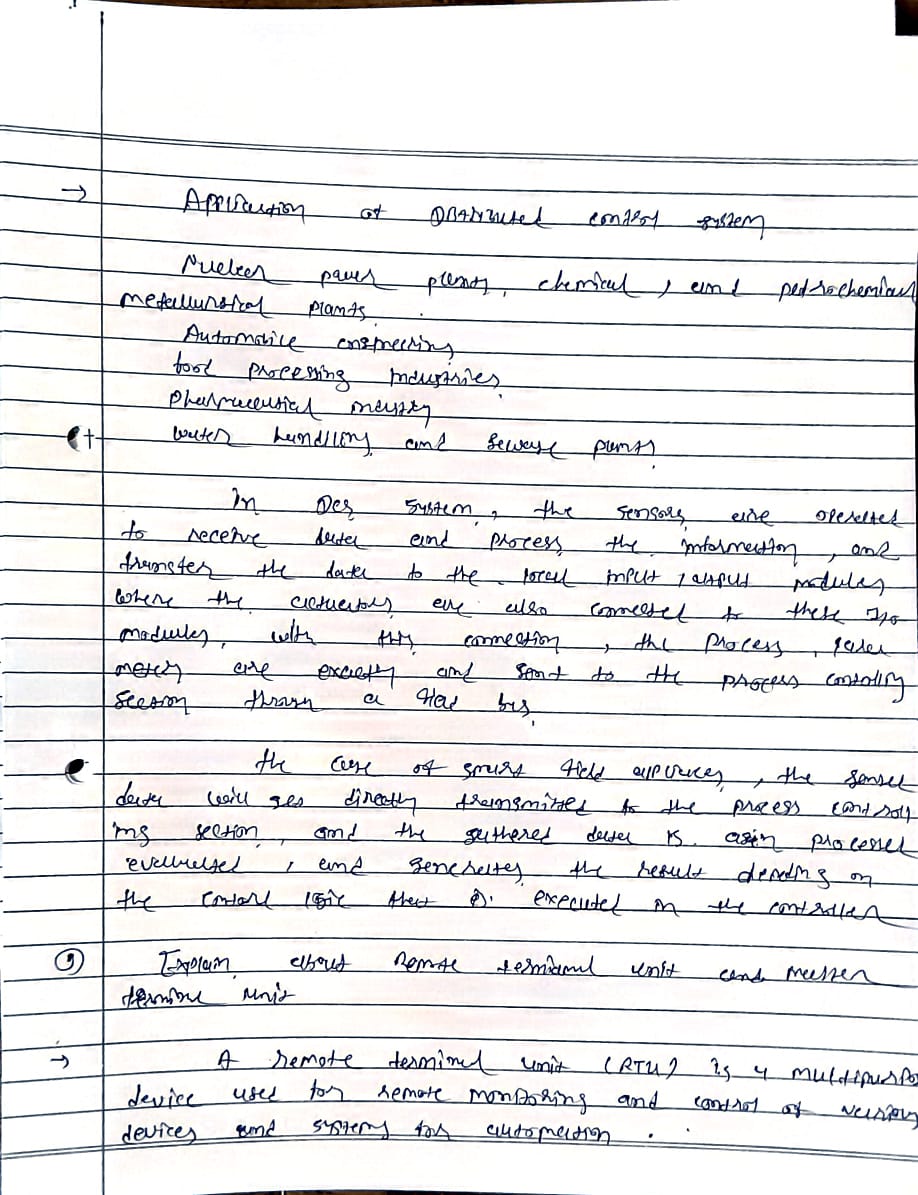 → Application of Distributed control system
Nuclear power plants, chemical, and petrochemical
metallurgical plants.
Automotive engineering
food processing industries
Pharmaceutical industry
water handling and sewage plants
In DCS system, the sensors are operated
to receive data and process the information, and
transfer the data to the local input/output modules
where the actuators are also connected to these I/O
modules, with this connection, the process, para
meters are exactly and sent to the process controlling
section through a field bus
the case of smart field appliances, the sensed
data will gets directly transmitted to the process controll
ing section, and the gathered data is again processed
evaluated, and generates the result depending on
the control logic that is executed in the controller
⑨ Explain about Remote terminal unit and master
termine unit
→ A remote terminal unit (RTU) is a multipurpo
device used for remote monitoring and control of various
devices and systems for automation.